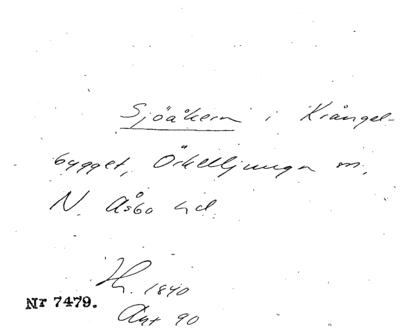 Sjöåkern i Krångel-
bygget, Örkelljunga sn,
N. Åsbo hd.
H. 1840
Akt 90
Nr 7479.